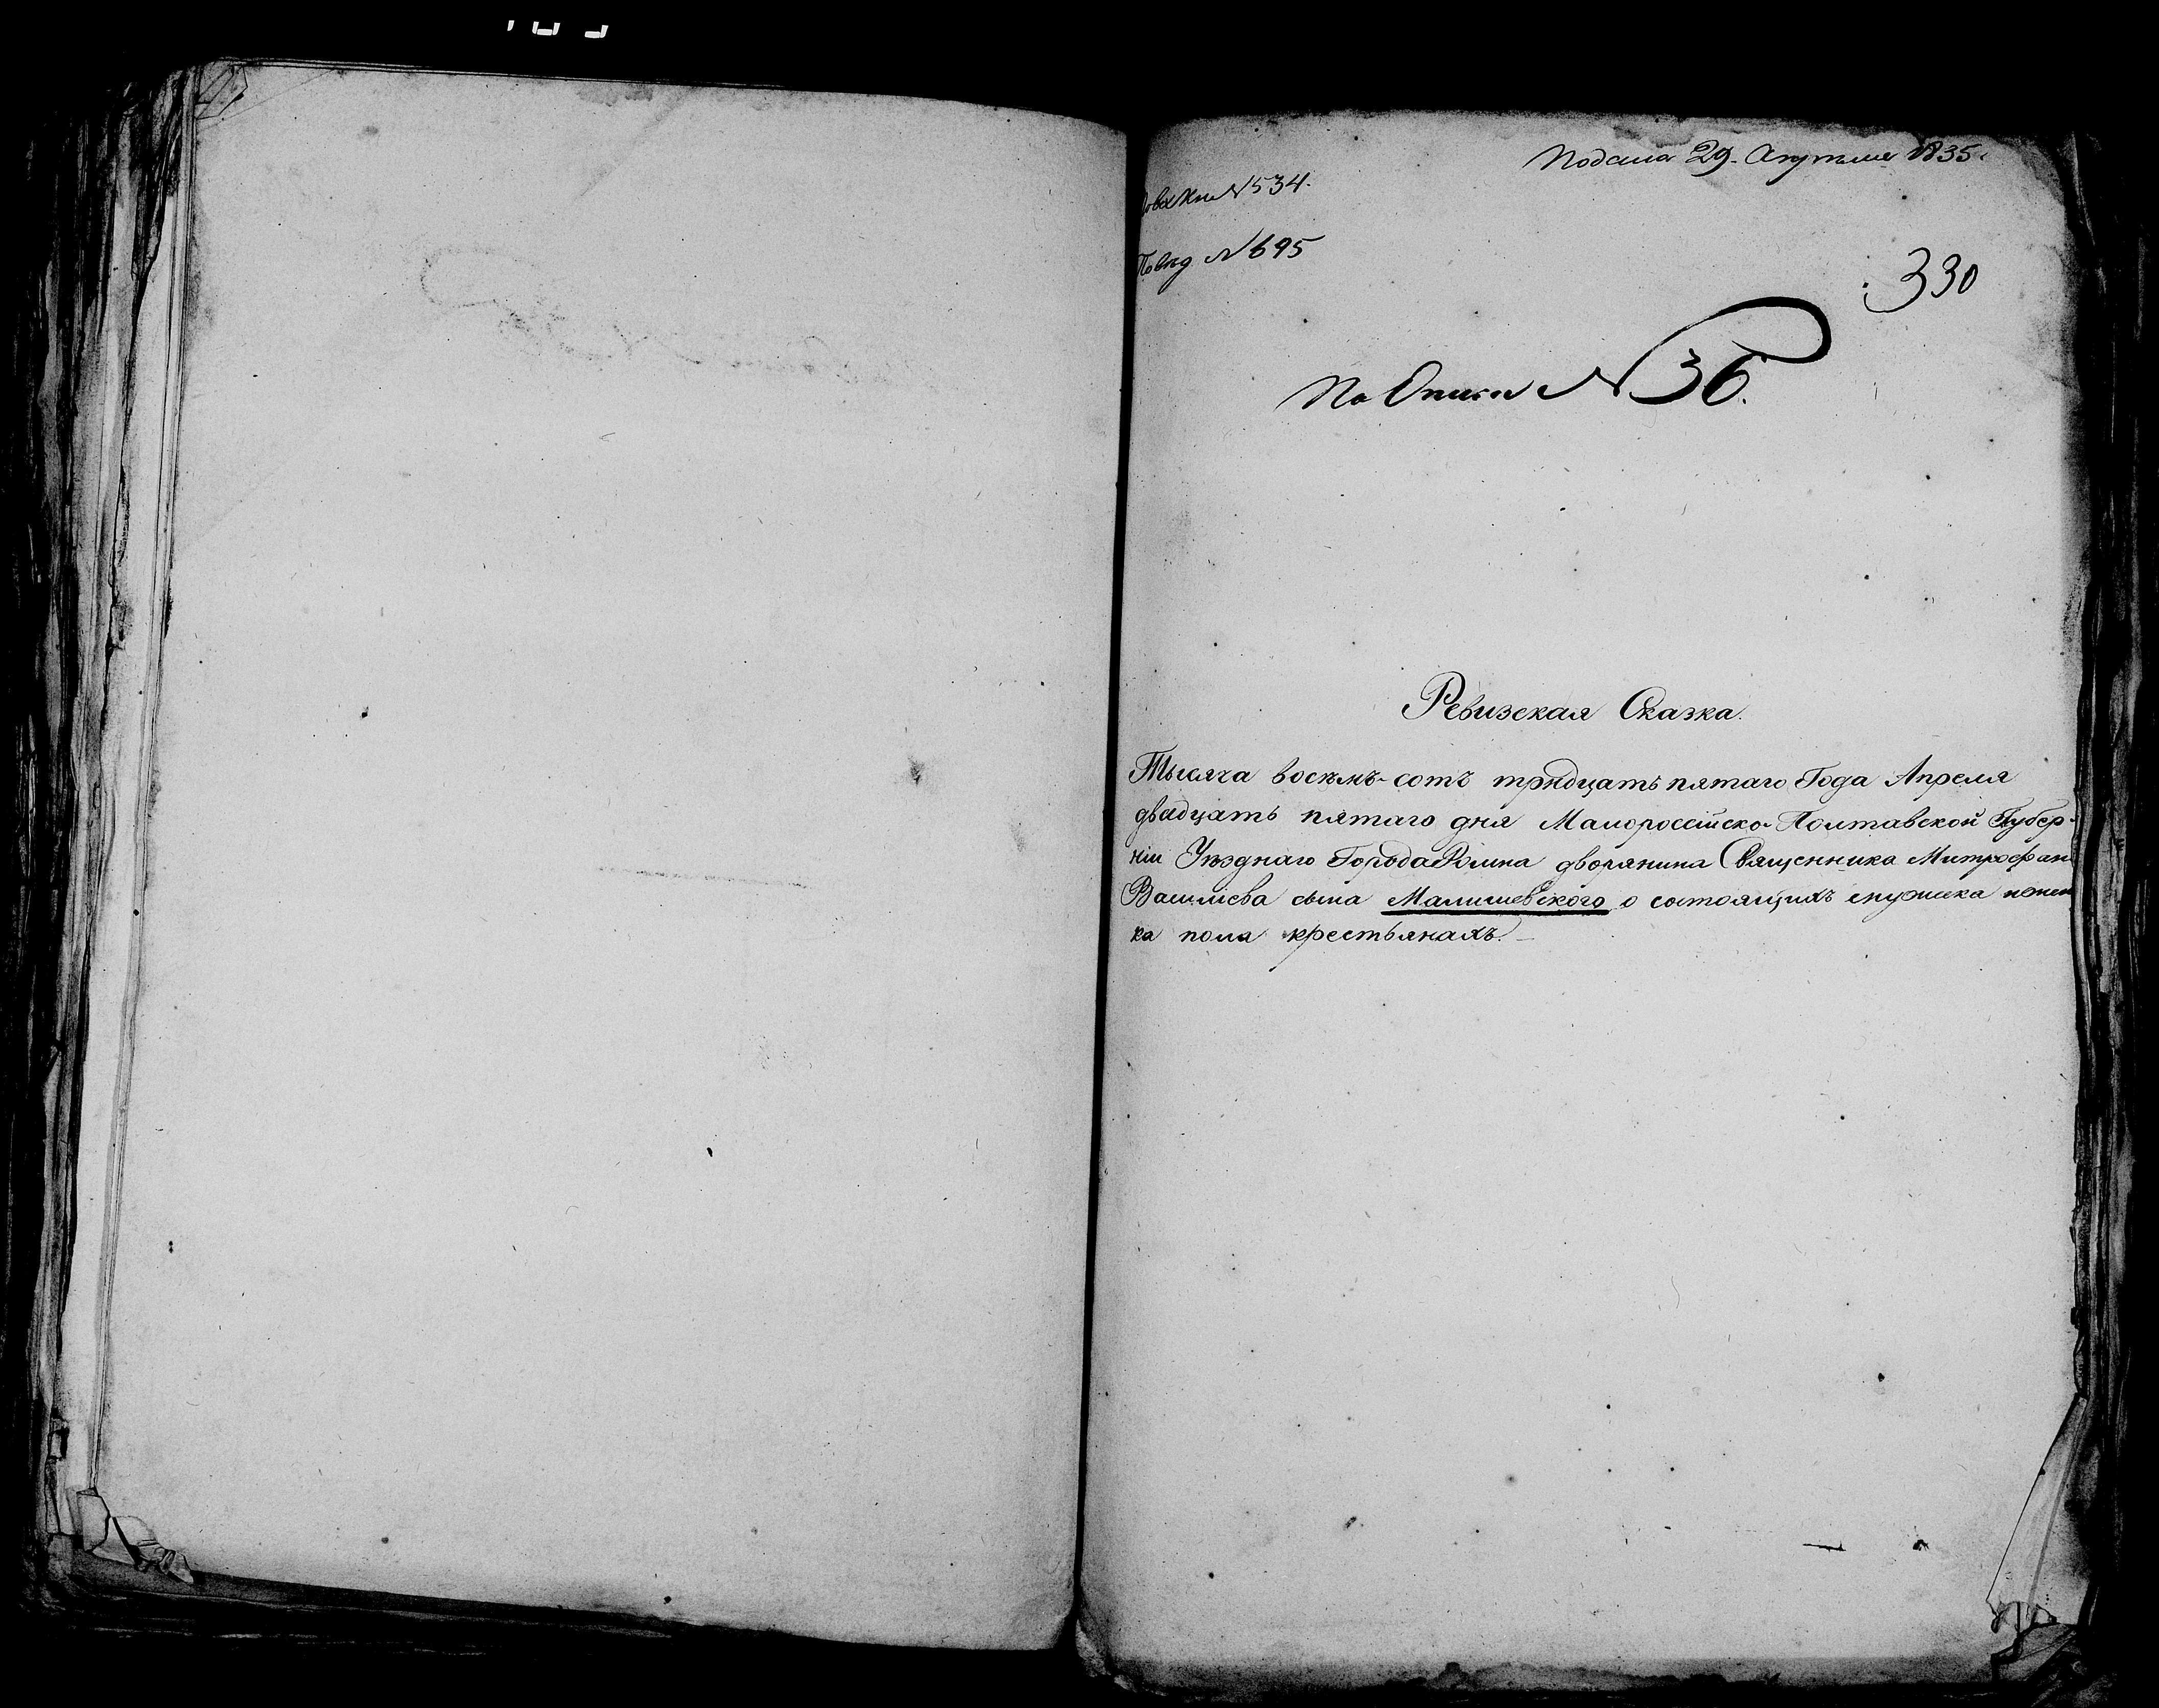 Подана 29. Апреля 1835.
№ 534.
№ 695
330
По Описи № 36.
Ревизская Сказка.
Тысяча восемь-сотъ тридцать пятаго Года Апреля
двадцать пятаго дня Малороссійско-Полтавской Губер-
ніи Уѣзднаго Города Ромна дворянина Священника Митрофан
Василіева сына Малишевского о состоящихъ мужеска и женс
ка пола крестьянахъ.